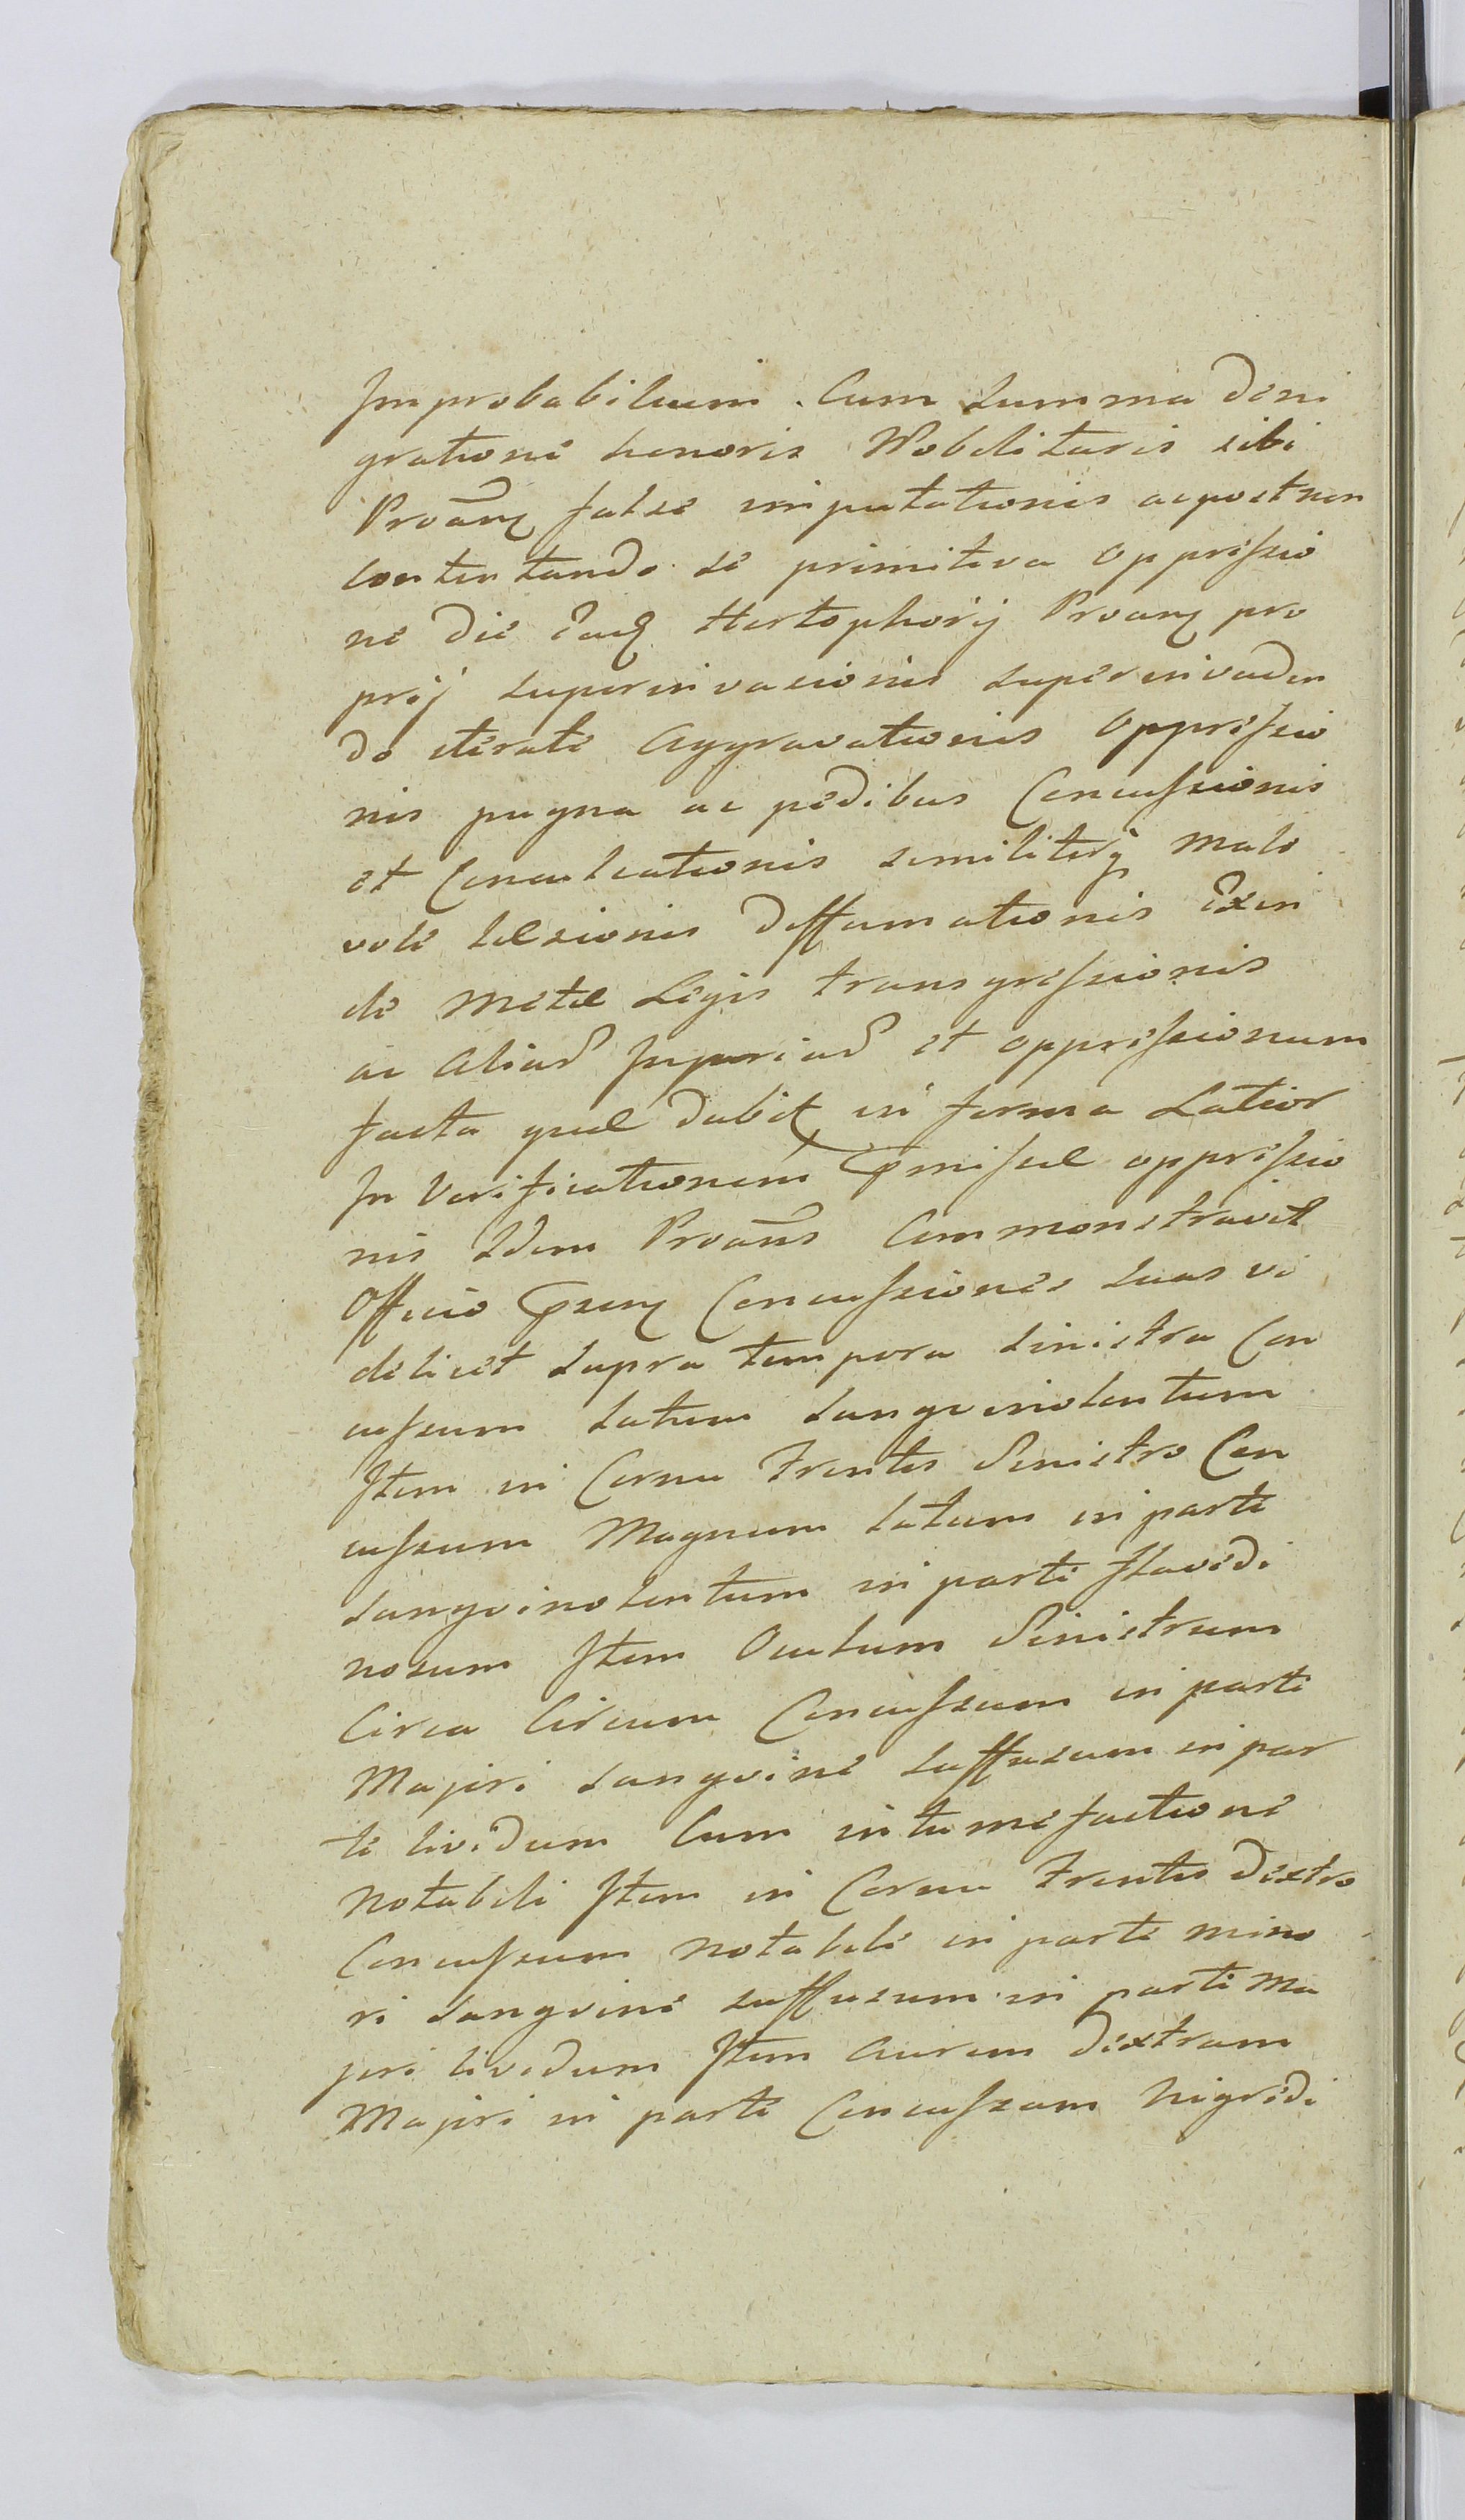 Improbabilium. Cum summa deni
gratione honoris Nobilitaris sibi
Proãnƺ false imputationis ac post non
contentando se primitiva oppressio
ne die Hortophorij Proanƺ pro
prij superinvasionis superinvaden
do iterate Aggravationis oppressio
nis pugna ac pedibus Concussionis
et Conculcationis similiterq malo
vole læsionis deffamationis Exin
de metæ Legis transgressionis
ac Aliar Injuriar et oppressionum
facta quæ dabit in forma Latior
In Verificationem præmissæ oppressio
nis Idem Proãns Commonstravit
Officio Concussiones suas vi
delicet supra tempora sinistra Con
cussum latum sangvinolentum
Item in Cornu Frontis Sinistro Con
cussum Magnum latum in parte
sangvinolentum in parte flavedi
nosum Item Oculum Sinistrum
Circa Circum Concussum in parte
Majori sangvine suffusum in par
te lividum Cum intumefactione
Notabili Item in Cornu Frontis dextro
Concussum notabile in parte mino
ri sangvine suffusum in parte Ma
jori lividum Item Aurem dextram
Majori in parte Concussam nigredi